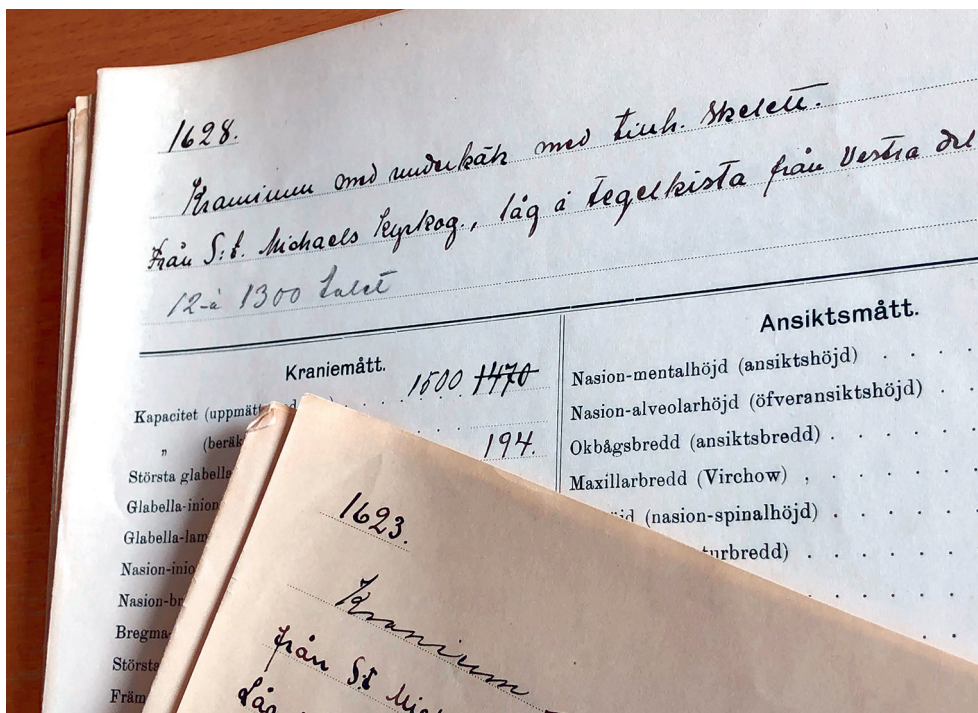 1628.
Kranium med underkäk med tillh. skelett.
Från S:t. Michaels kyrkog., låg i tegelkista från Vestra del
12-à 1300 talet
Kraniemått.
Kapacitet (uppmätt 1500 1470
„ (beräk 194.
Största glabella
Glabella-inion
Glabella-lam
Nasion-inio
Nasion-br
Bregma
Största
Främ
Ansiktsmått.
Nasion-mentalhöjd (ansiktshöjd)
Nasion-alveolarhöjd (öfveransiktshöjd)
Okbågsbredd (ansiktsbredd)
Maxillarbredd (Virchow)
(nasion-spinalhöjd)
turbredd)
1623.
Kranium
från S:t Mich
Låg